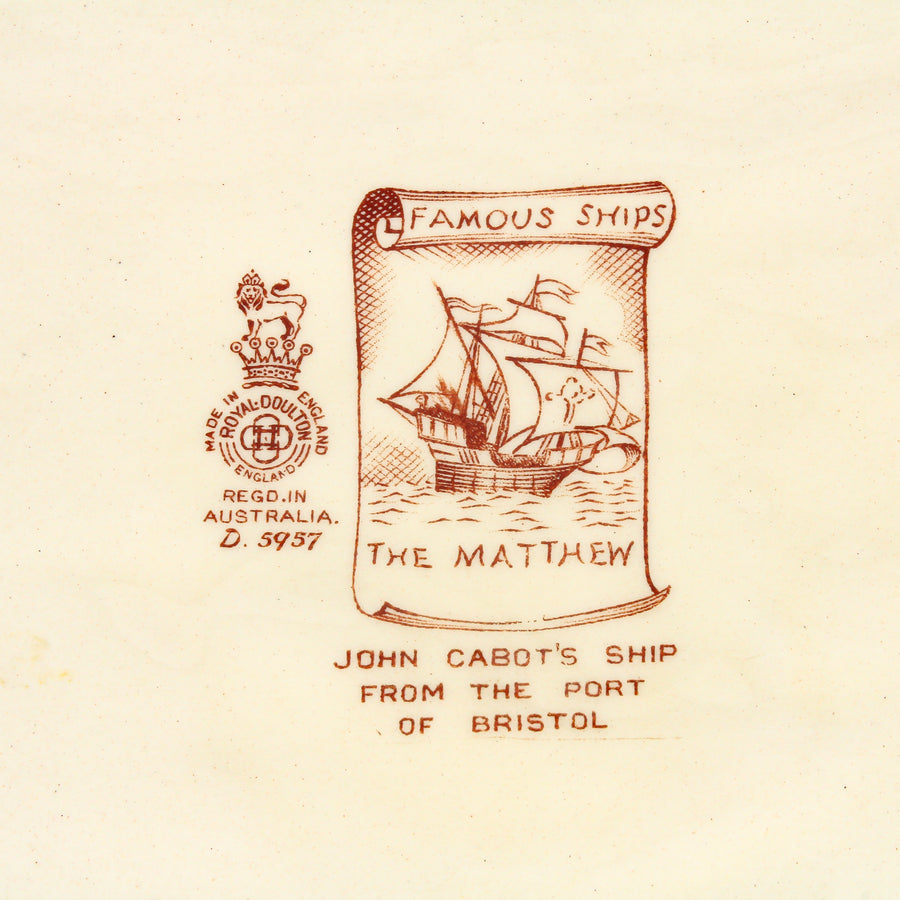 FAMOUS SHIPS
THE MATTHEW
JOHN CABOT'S SHIP
FROM THE PORT
OF BRISTOL
MADE IN ENGLAND
ROYAL·DOULTON
ENGLAND
REGD.IN
AUSTRALIA.
D. 5957